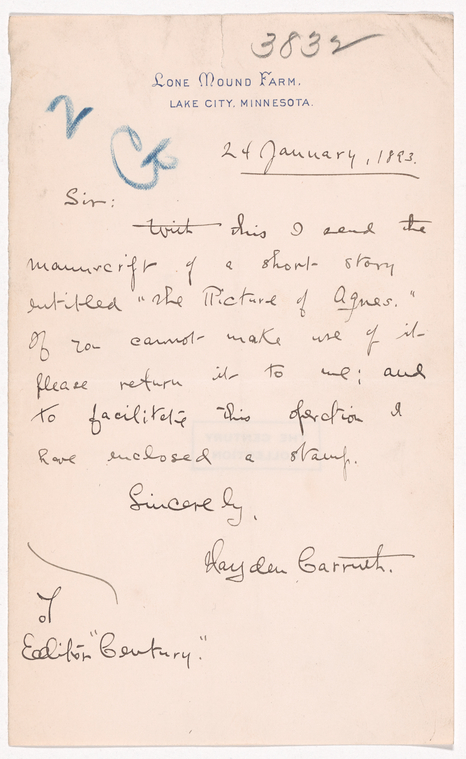 3832
LONE MOUND FARM.
LAKE CITY, MINNESOTA.
24 January, 1893.
Sir:
With this I send the
manuscript of a short story
entitled "The Picture of Agnes."
If you cannot make use of it
please return it to me; and
to facilitate this operation I
have enclosed a stamp.
Sincerely,
Hayden Carruth.
To
Editor "Century."